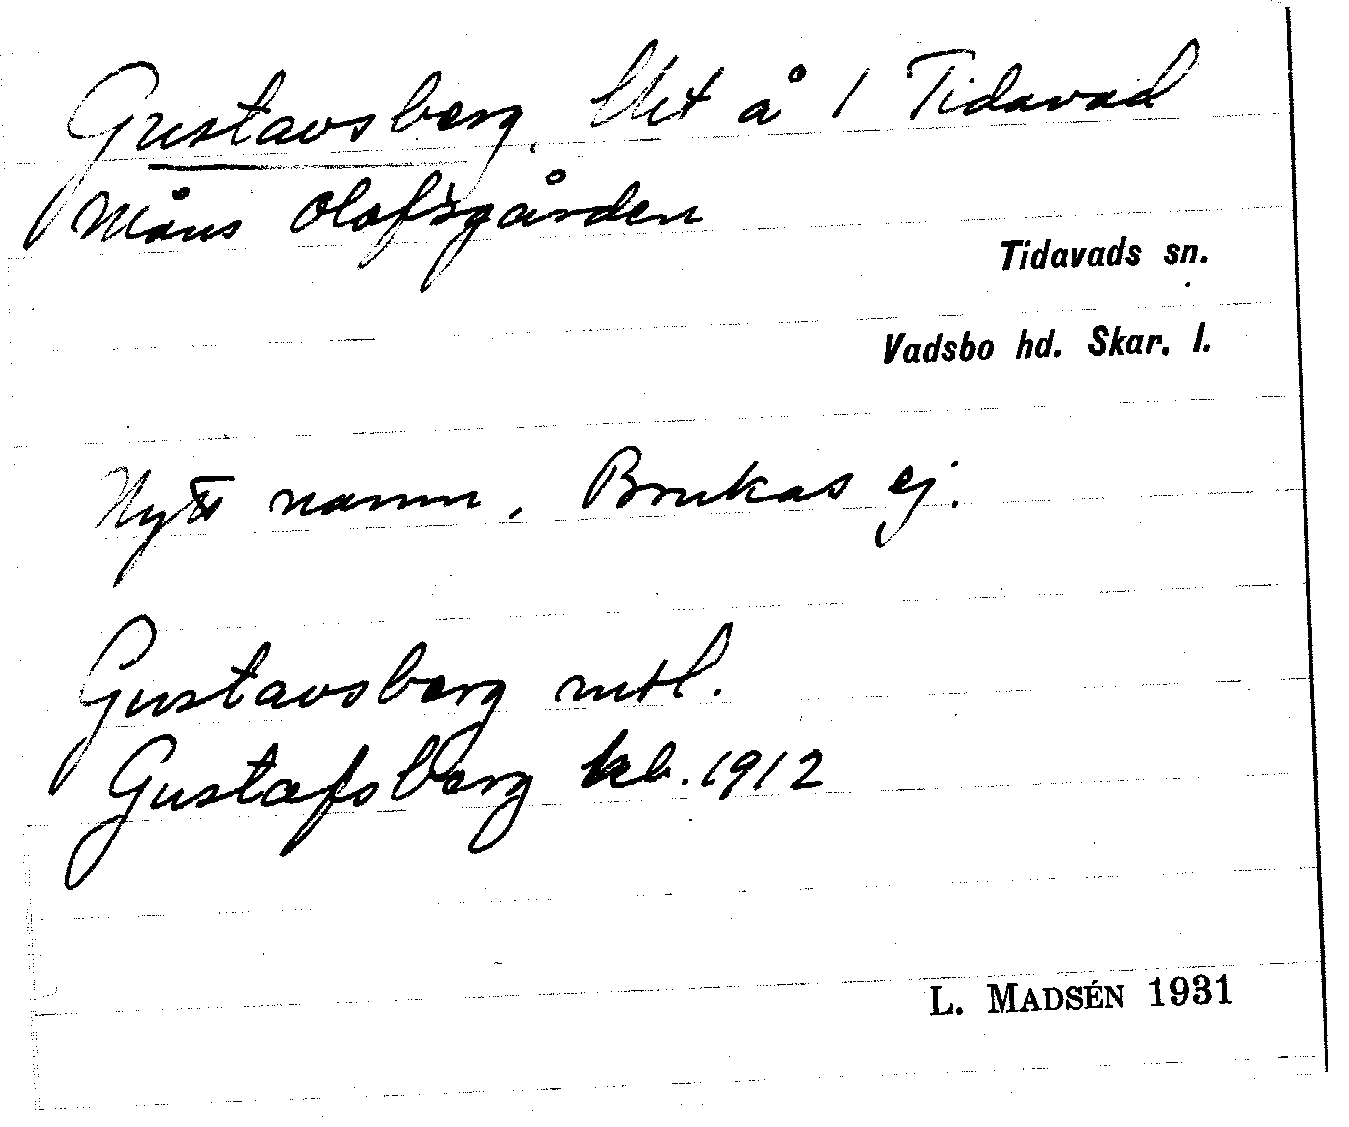 Gustavsberg, Utet å 1 Tidavad
Måns Olofsgården
Tidavads sn.
Vadsbo hd. Skar. l.
Nytt namn. Brukas ej.
Gustavsberg mtl.
Gustafsberg kb. 1912
L. MADSÉN 1931